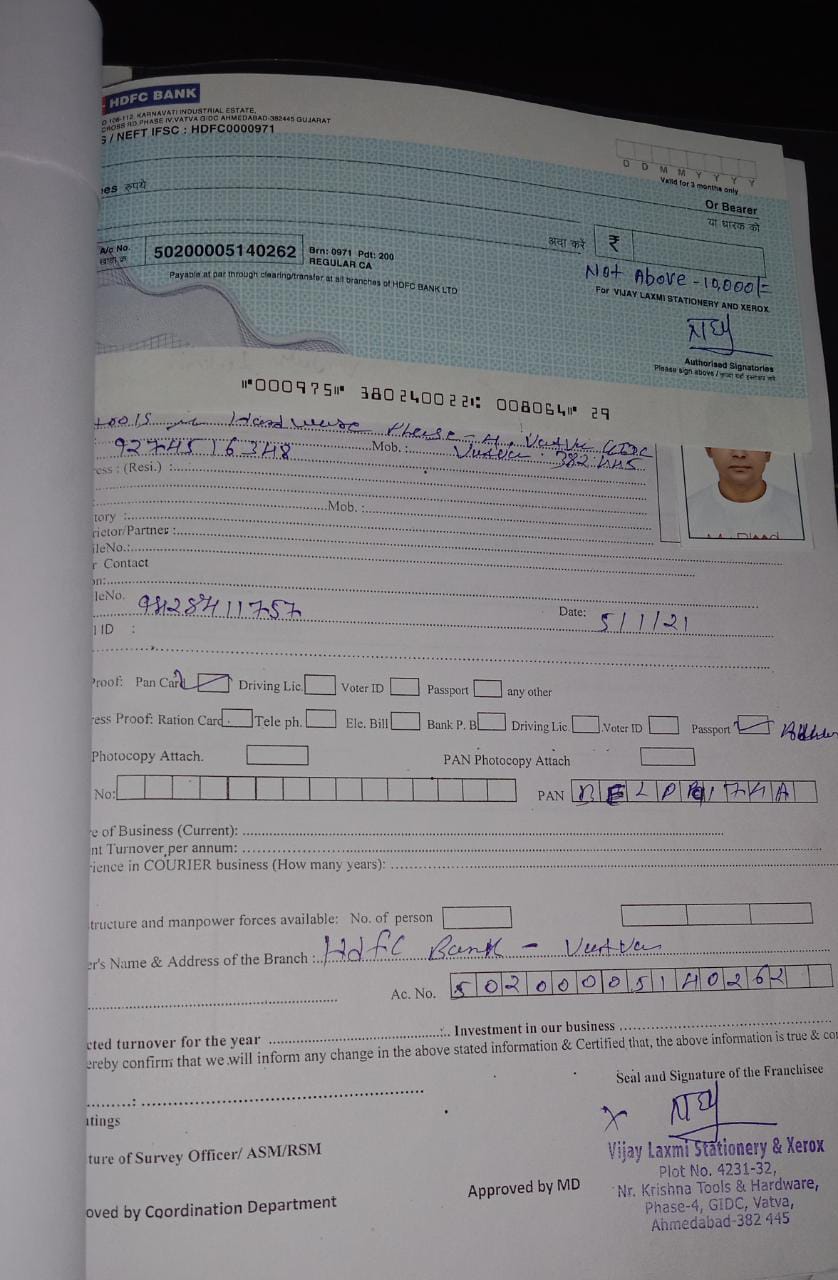 HDFC BANK
106-112, KARNAVATI INDUSTRIAL ESTATE,
CROSS RD, PHASE IV, VATVA GIDC AHMEDABAD-382445 GUJARAT
/ NEFT IFSC : HDFC0000971
D D M M Y Y Y Y
Valid for 3 months only
Or Bearer
या धारक को
ees रुपये
अदा करें ₹
A/c No. 50200005140262 Brn: 0971 Pdt: 200
REGULAR CA
Not Above - 10,000/=
Payable at par through clearing/transfer at all branches of HDFC BANK LTD
For VIJAY LAXMI STATIONERY AND XEROX
Authorised Signatories
Please sign above /
⑈000975⑈ 380240022⑆ 008064⑈ 29
Tools Hardware Phase-4, Vatva GIDC
9274516348 Mob. : Vatva : 382445
ess : (Resi.) :
Mob. :
tory :
rietor/Partner :
ileNo.:
r Contact
on:
leNo. 9828411757 Date: 5/1/21
l ID :
Proof: Pan Card Driving Lic. Voter ID Passport any other
ess Proof: Ration Card Tele ph. Ele. Bill Bank P. B Driving Lic .Voter ID Passport
Photocopy Attach. PAN Photocopy Attach
No: PAN
e of Business (Current):
nt Turnover per annum:
rience in COURIER business (How many years):
tructure and manpower forces available: No. of person
er's Name & Address of the Branch : Hdfc Bank - Vatva
Ac. No. 50200005140262
cted turnover for the year Investment in our business
ereby confirm that we will inform any change in the above stated information & Certified that, the above information is true & co
Seal and Signature of the Franchisee
tings
ture of Survey Officer/ ASM/RSM
Vijay Laxmi Stationery & Xerox
Plot No. 4231-32,
Nr. Krishna Tools & Hardware,
Phase-4, GIDC, Vatva,
Ahmedabad-382 445
oved by Coordination Department Approved by MD